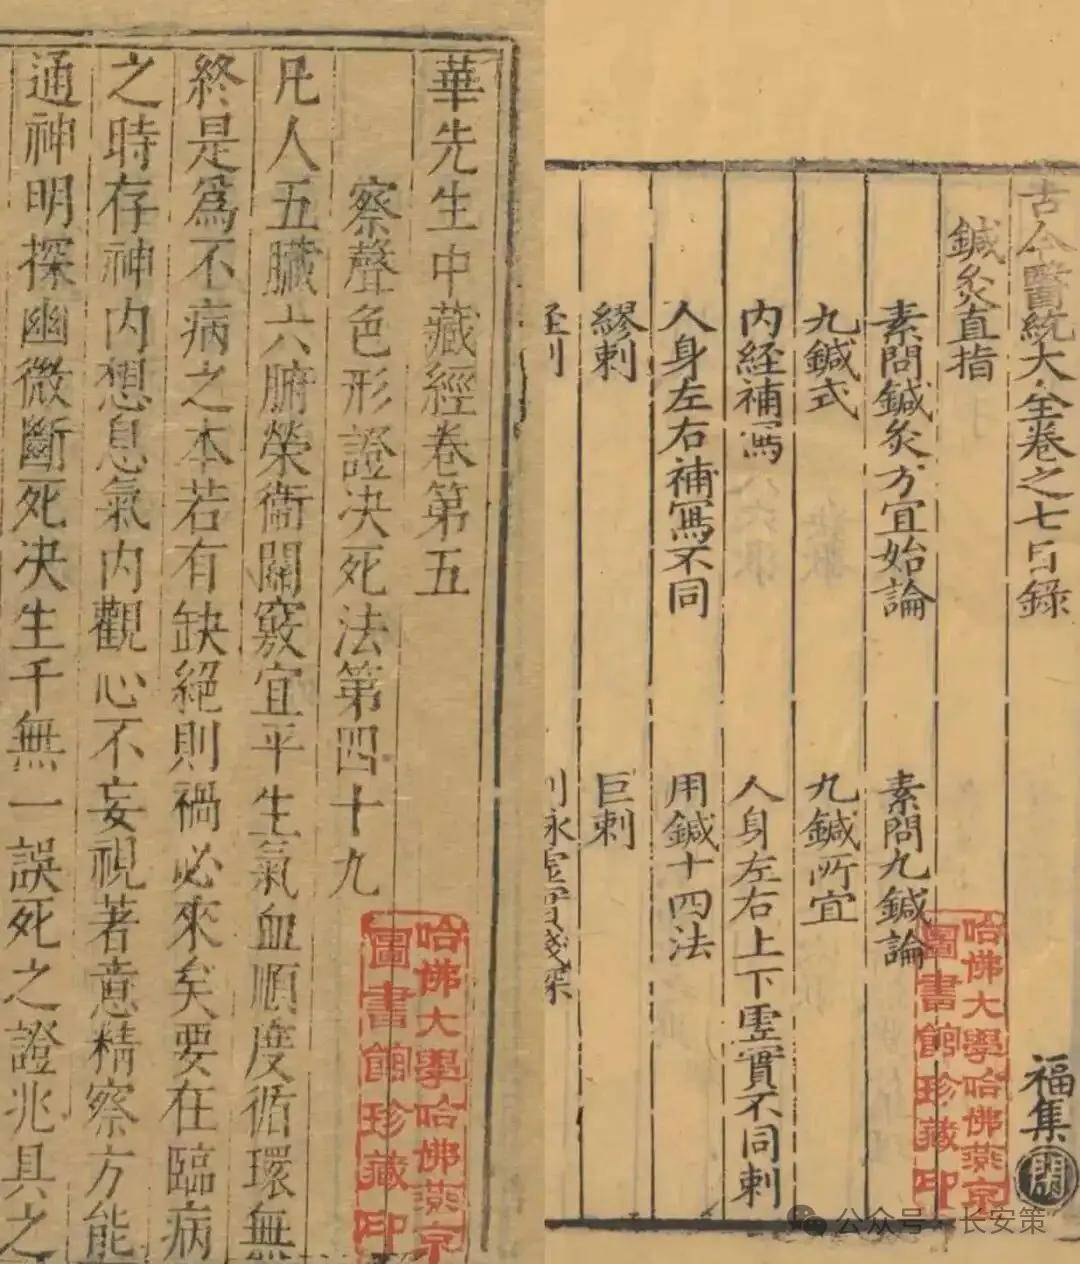 華先生中藏經卷第五
察聲色形證决死法第四十九
凡人五臟六腑榮衞關竅宜平生氣血順度循環無
終是爲不病之本若有缺絕則禍必來矣要在臨病
之時存神內想息氣內觀心不妄視著意精察方能
通神明探幽微斷死决生千無一誤死之證兆具之
哈佛大學哈佛燕京
圖書館珍藏印
古今醫統大全卷之七目錄
福集
鍼灸直指
素問鍼灸方宜始論
素問九鍼論
九鍼式
九鍼所宜
内経補寫
人身左右上下虛實不同刺
人身左右補寫不同
用鍼十四法
繆刺
巨刺
哈佛大學哈佛燕京
圖書館珍藏印
公众号·长安策